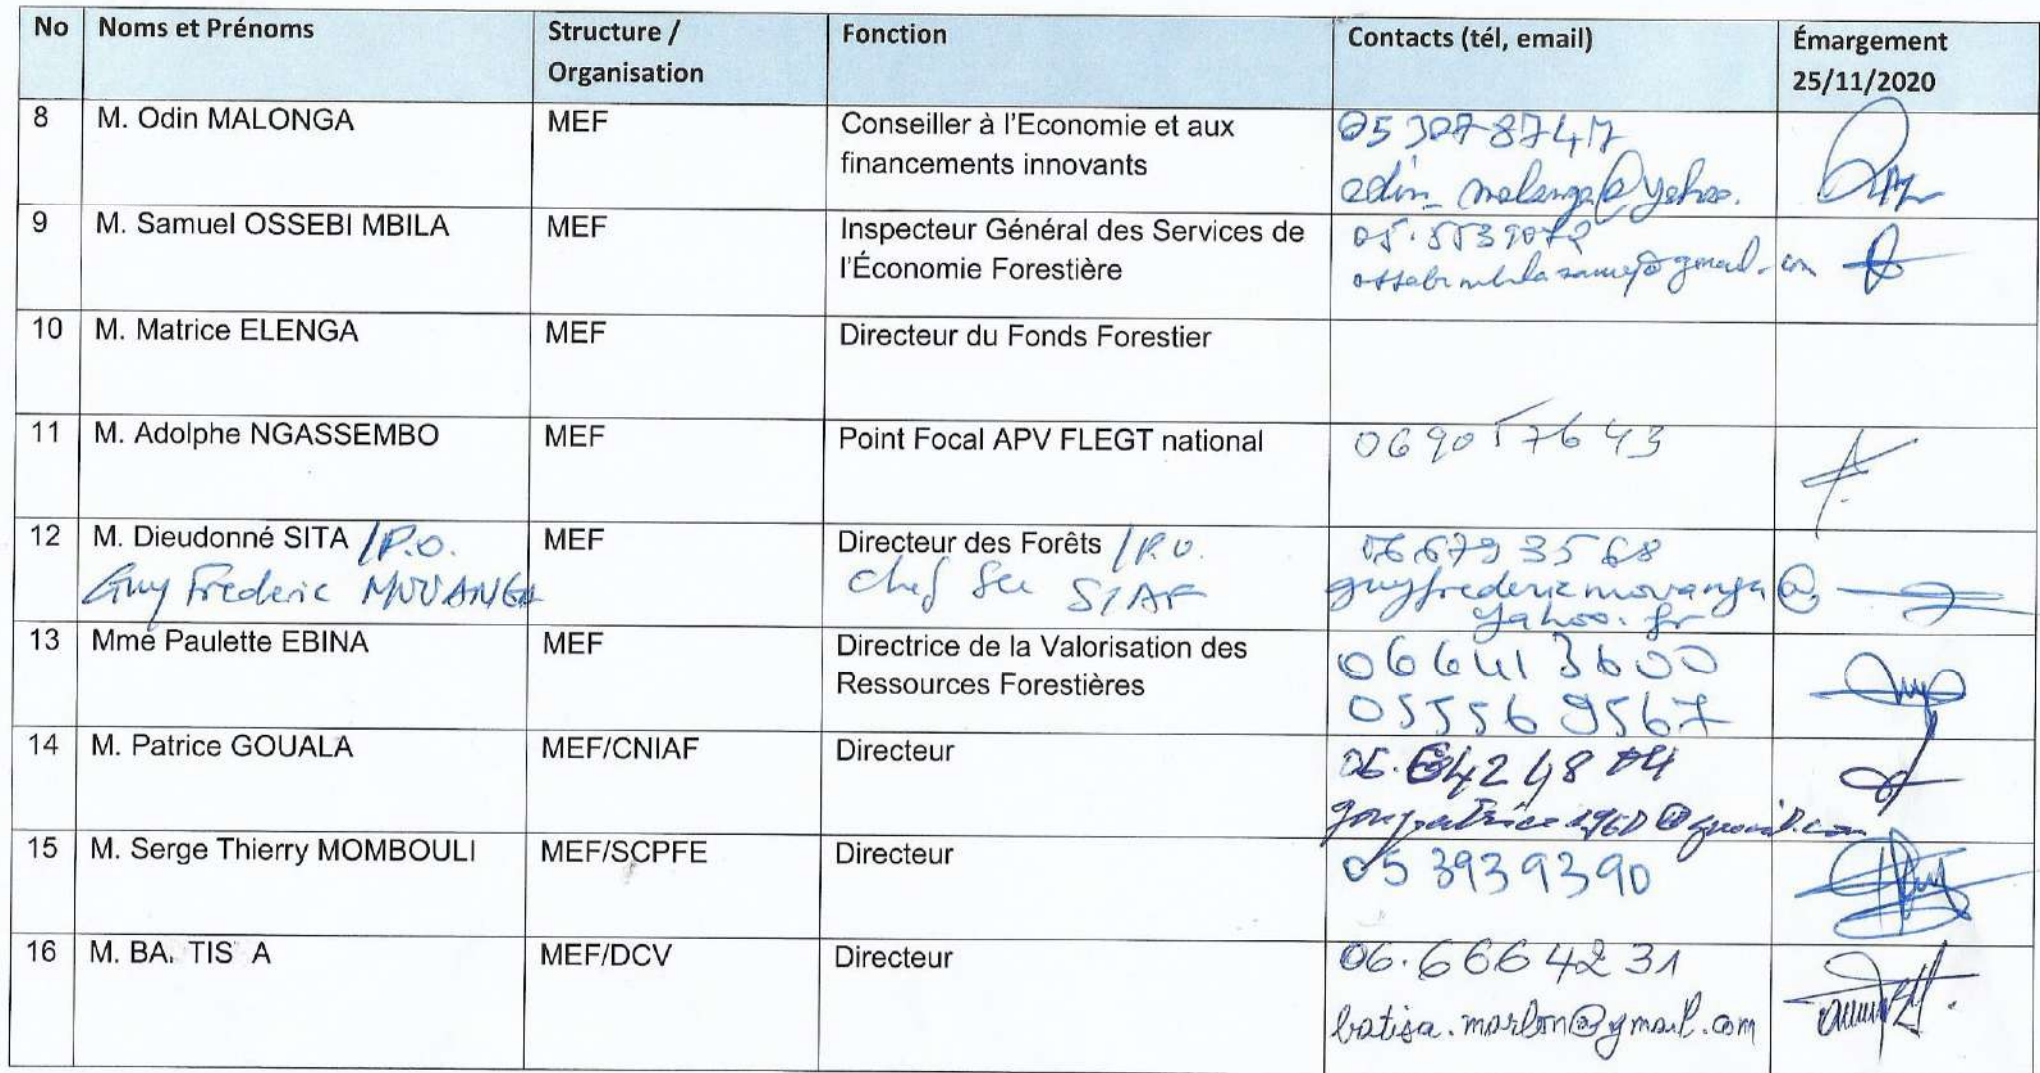 No Noms et Prénoms Structure / Organisation Fonction Contacts (tél, email) Émargement 25/11/2020
8 M. Odin MALONGA MEF Conseiller à l'Economie et aux
financements innovants
@yahoo.
9 M. Samuel OSSEBI MBILA MEF Inspecteur Général des Services de
l'Économie Forestière
10 M. Matrice ELENGA MEF Directeur du Fonds Forestier
11 M. Adolphe NGASSEMBO MEF Point Focal APV FLEGT national 069057643
12 M. Dieudonné SITA /P.O. MEF Directeur des Forêts /P.O. 066793568
Guy Frederic MOUANGA Chef SIAF guyfredericmouanga@
yahoo.fr
13 Mme Paulette EBINA MEF Directrice de la Valorisation des 066413600
Ressources Forestières 055569567
14 M. Patrice GOUALA MEF/CNIAF Directeur
goupatrice1960@gmail.com
15 M. Serge Thierry MOMBOULI MEF/SCPFE Directeur 053939390
16 M. BA. TIS A MEF/DCV Directeur 06.6664231
batisa.marlon@gmail.com